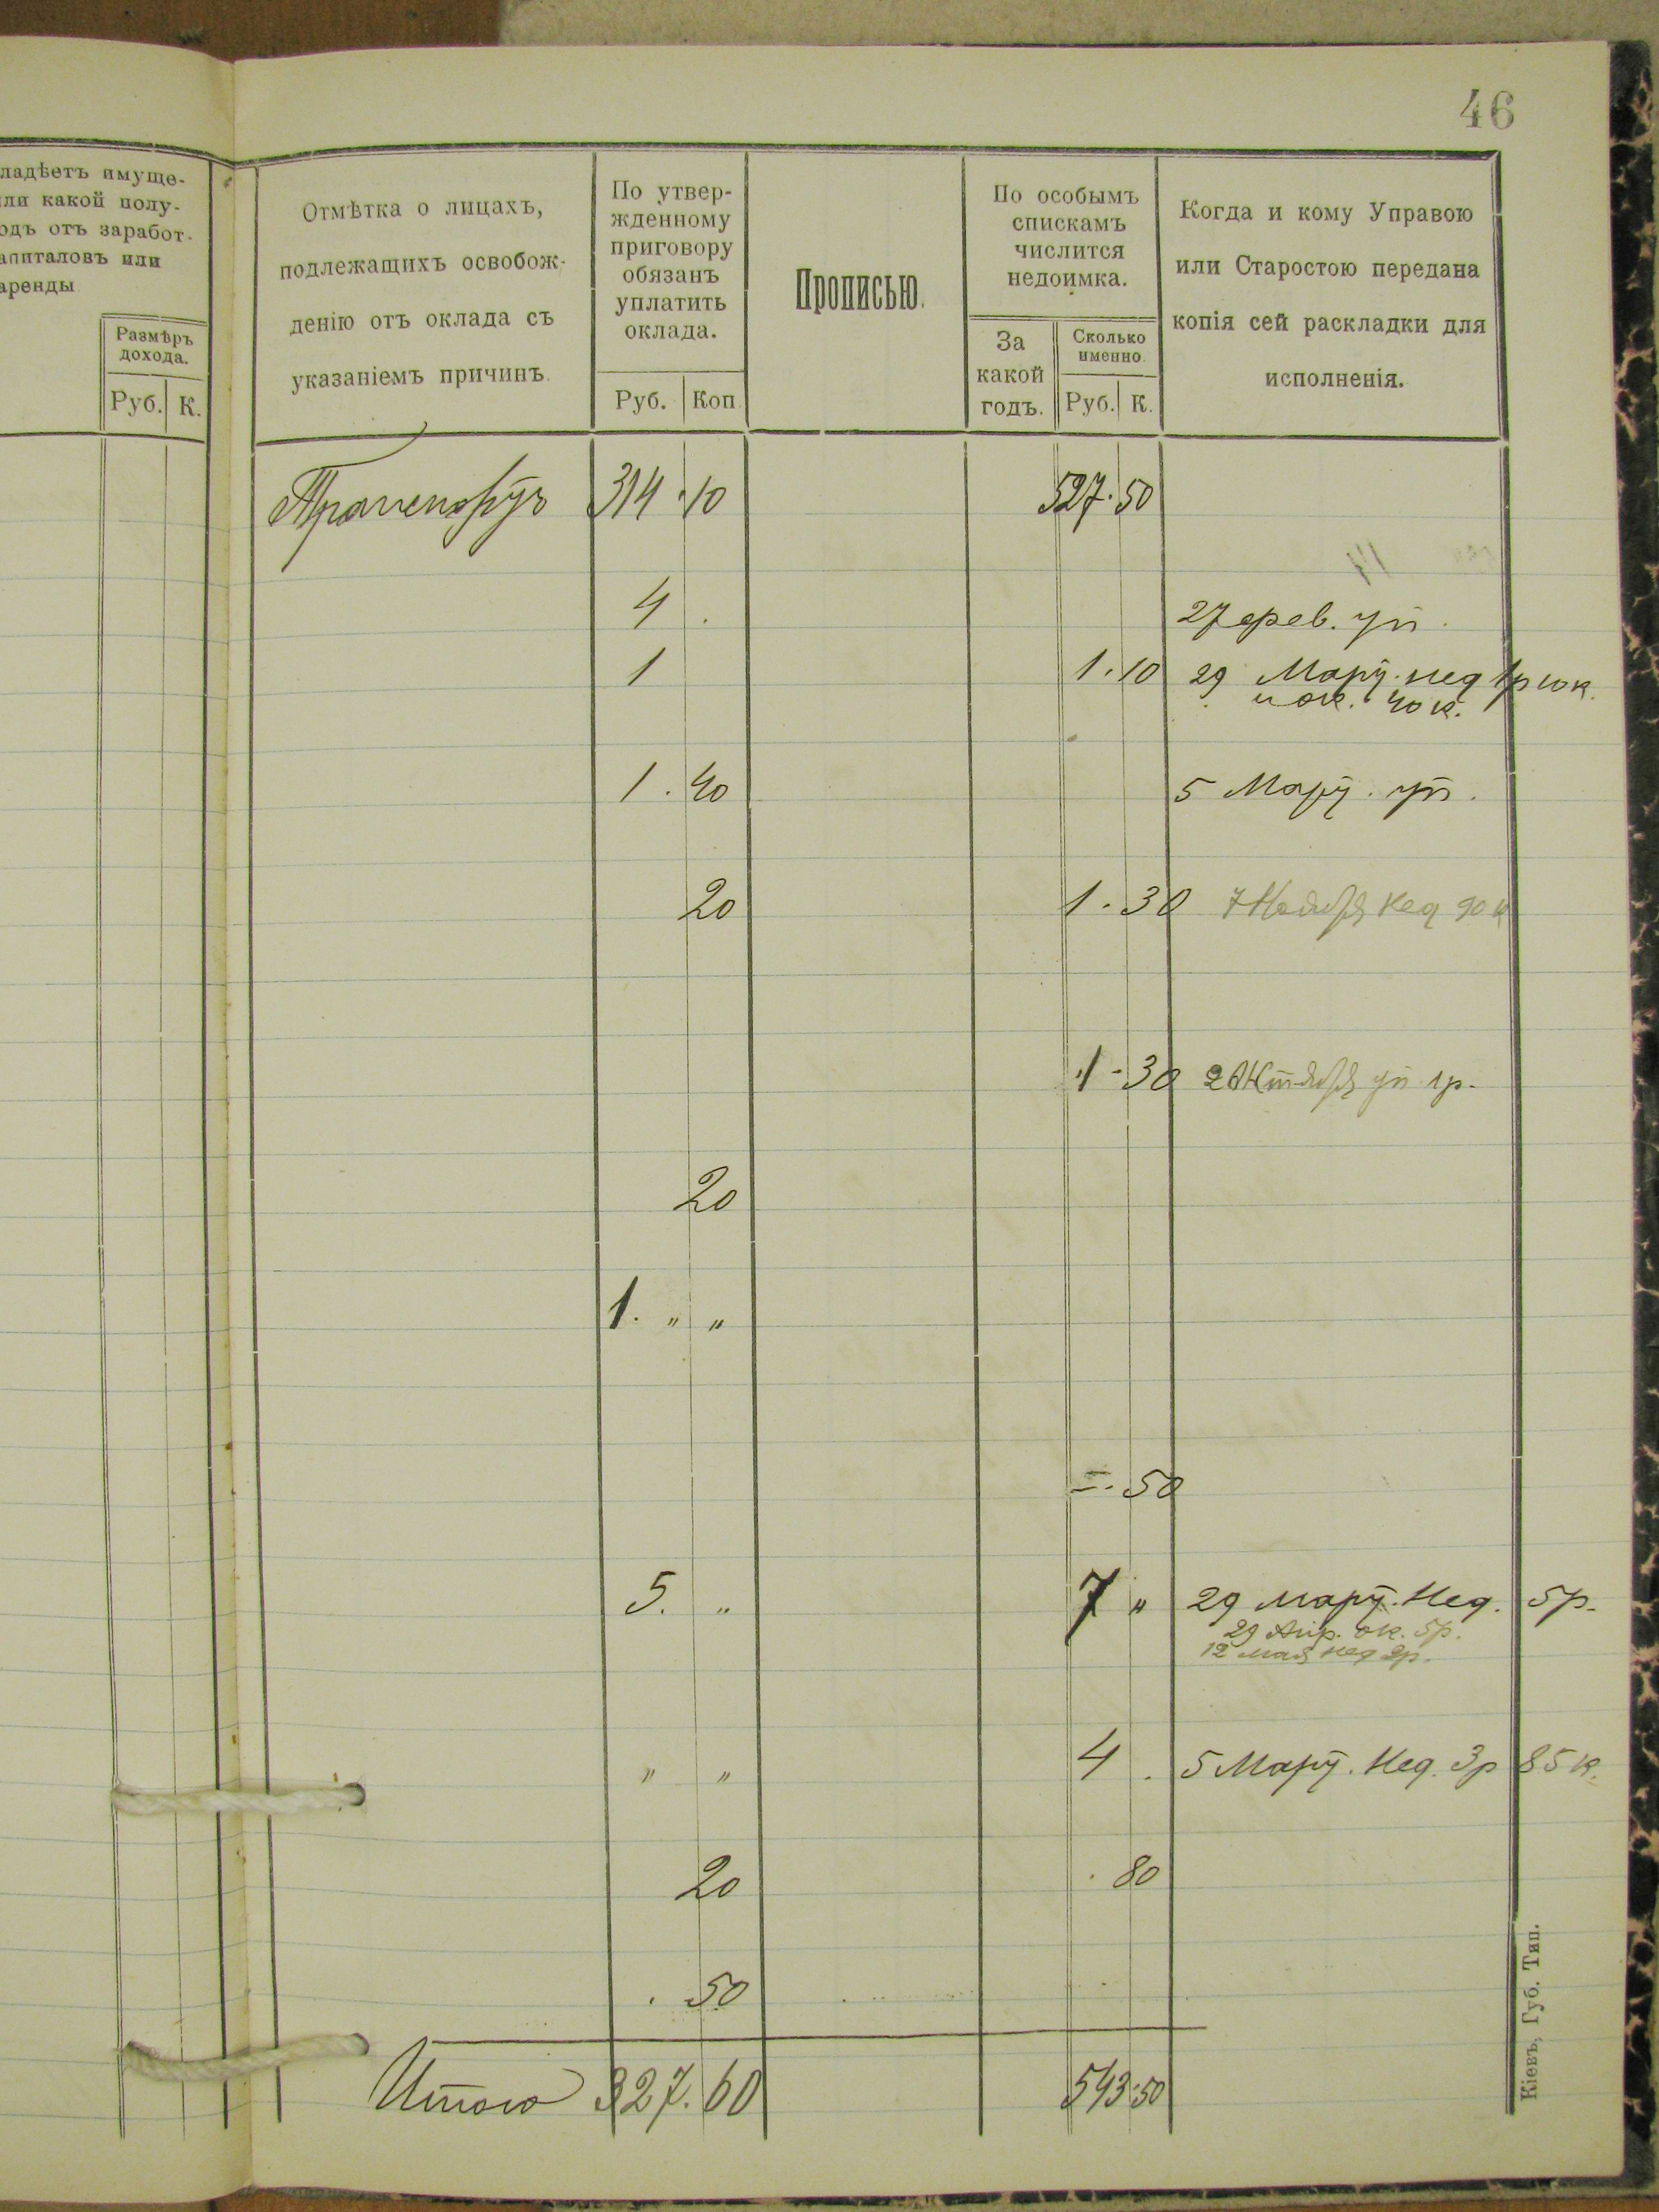 46
ладѣетъ имуще-
или какой полу-
одъ отъ заработ-
апиталовъ или
аренды
Размѣръ
дохода.
Руб. К.
Отмѣтка о лицахъ,
подлежащихъ освобож-
денію отъ оклада съ
указаніемъ причинъ.
По утвер-
жденному
приговору
обязанъ
уплатить
оклада.
Руб. Коп.
Прописью.
По особымъ
спискамъ
числится
недоимка.
За
какой
годъ.
Сколько
именно.
Руб. К.
Когда и кому Управою
или Старостою передана
копія сей раскладки для
исполненія.
Транспортъ 314 . 10 527 . 50
4 . 27 фев. уп.
1 1 . 10 29 Март. нед 1р 10 к.
и ок. 40 к.
1 . 40 5 Март. уп.
20 1 - 30 7 Ноября нед 90 к
1 - 30 2 Октября уп 1р.
20
1. " "
- . 50
5. " 7 " 29 март. Нед. 5р.
29 Апр. ок. 5р.
12 мая нед 2р.
" " 4 . 5 Март. Нед. 3р 85 к.
20 . 80
. 50
Итого 327. 60 543 . 50
Кіевъ, Губ. Тип.